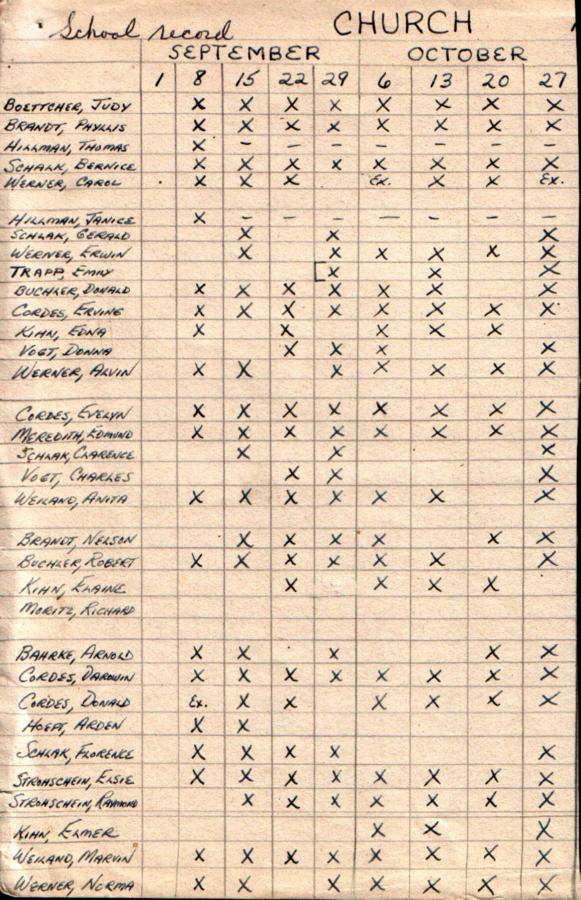 School record CHURCH
SEPTEMBER OCTOBER
1 8 15 22 29 6 13 20 27
BOETTCHER, JUDY X X X X X X X X
BRANDT, PHYLLIS X X X X X X X X
HILLMAN, THOMAS X - - - - - - -
SCHALK, BERNICE X X X X X X X X
WERNER, CAROL X X X Ex. X X Ex.
HILLMAN, JANICE X - - - - - - -
SCHLAK, GERALD X X X
WERNER, ERWIN X X X X X X
TRAPP, EMILY [X X X
BUCHLER, DONALD X X X X X X X
CORDES, ERVING X X X X X X X X
KIHN, EDNA X X X X X
VOGT, DONNA X X X X
WERNER, ALVIN X X X X X X X
CORDES, EVELYN X X X X X X X X
MEREDITH, EDMUND X X X X X X X X
SCHLAK, CLARENCE X X X
VOGT, CHARLES X X X
WEILAND, ANITA X X X X X X X
BRANDT, NELSON X X X X X X
BUCHLER, ROBERT X X X X X X X
KIHN, ELAINE X X X X
MORITZ, RICHARD
BAHRKE, ARNOLD X X X X X
CORDES, DARWIN X X X X X X X X
CORDES, DONALD Ex. X X X X X X
HOEFT, ARDEN X X
SCHLAK, FLORENCE X X X X X
STROHSCHEIN, ELSIE X X X X X X X X
STROHSCHEIN, RAYMOND X X X X X X X
KIHN, ELMER X X X
WEILAND, MARVIN X X X X X X X X
WERNER, NORMA X X X X X X X